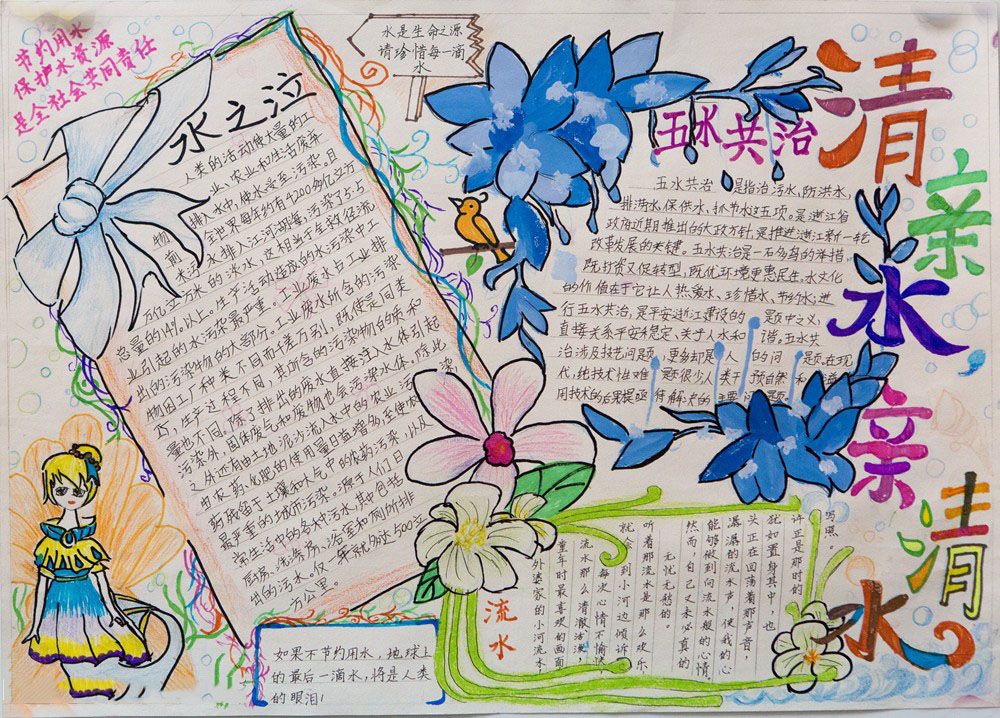 节约用水
保护水资源
是全社会共同责任
水是生命之源
请珍惜每一滴
水
清
亲
水
亲
清
水
水之泣
人类的活动使大量的工
业、农业和生活废弃
物排入水中,使水受至污染。目
前,全世界每年约有4200多亿立方
米污水排入江河湖海,污染了5.5
万亿立方米的淡水,这相当于全球径流
总量的14%以上。生产活动造成的水污染中工
业引起的水污染最严重。工业废水占工业排
出的污染物的大部分。工业废水所含的污染
物因工厂种类不同而千差万别,既使是同类
厂,生产过程不同,其所含的污染物的质和
量也不同。除了排出的废水直接注入水体引起
污染外,固体废气和废物也会污染水体。除此
又从还有由土地泥沙流入水中的农业污染,
也农药、化肥的使用量日益增多,至使
药残留于土壤和大气中的农药污染,以及
最严重的城市污染。源于人们日
常生活中的各大污水,其中包括
厨房、洗涤房、浴室和厕所排
出的污水。仅 年就多达500立
方公里。
五水共治
五水共治 是指治污水,防洪水,
排涝水,保供水、抓节水这五项。是浙江省
政府近期推出的大政方针,是推进浙江新一轮
改革发展的关键。五水共治是一石多鸟的举措,
既扩投资又促转型,既优环境更惠民生。水文化
的价值在于它让人热爱水、珍惜水、节约水;进
行五水共治,是平安浙江建设的 题中之义,
直接关系平安稳定、关于人水和 谐。五水共
治涉及技艺问题,更多却是 人 的问 题。在现
代,纯技术性难 题很少人类于 预自然 和
用技术的后果提亟待解决的 主要 问 题。
流水
外婆家的小河流水,
童年时最喜欢的画面
流水那么清澈活泼,
每次心情不愉快
就会到小河边倾诉
听着那流水是那么欢乐
无忧无愁的。
然而,自己又未必真的
能够做到向流水般的心情
潺潺的流水声,使我的心
头正在回荡着那声音,
犹如置身其中,也
许正是那时的
写照。
如果不节约用水,地球上
的最后一滴水,将是人类
的眼泪!